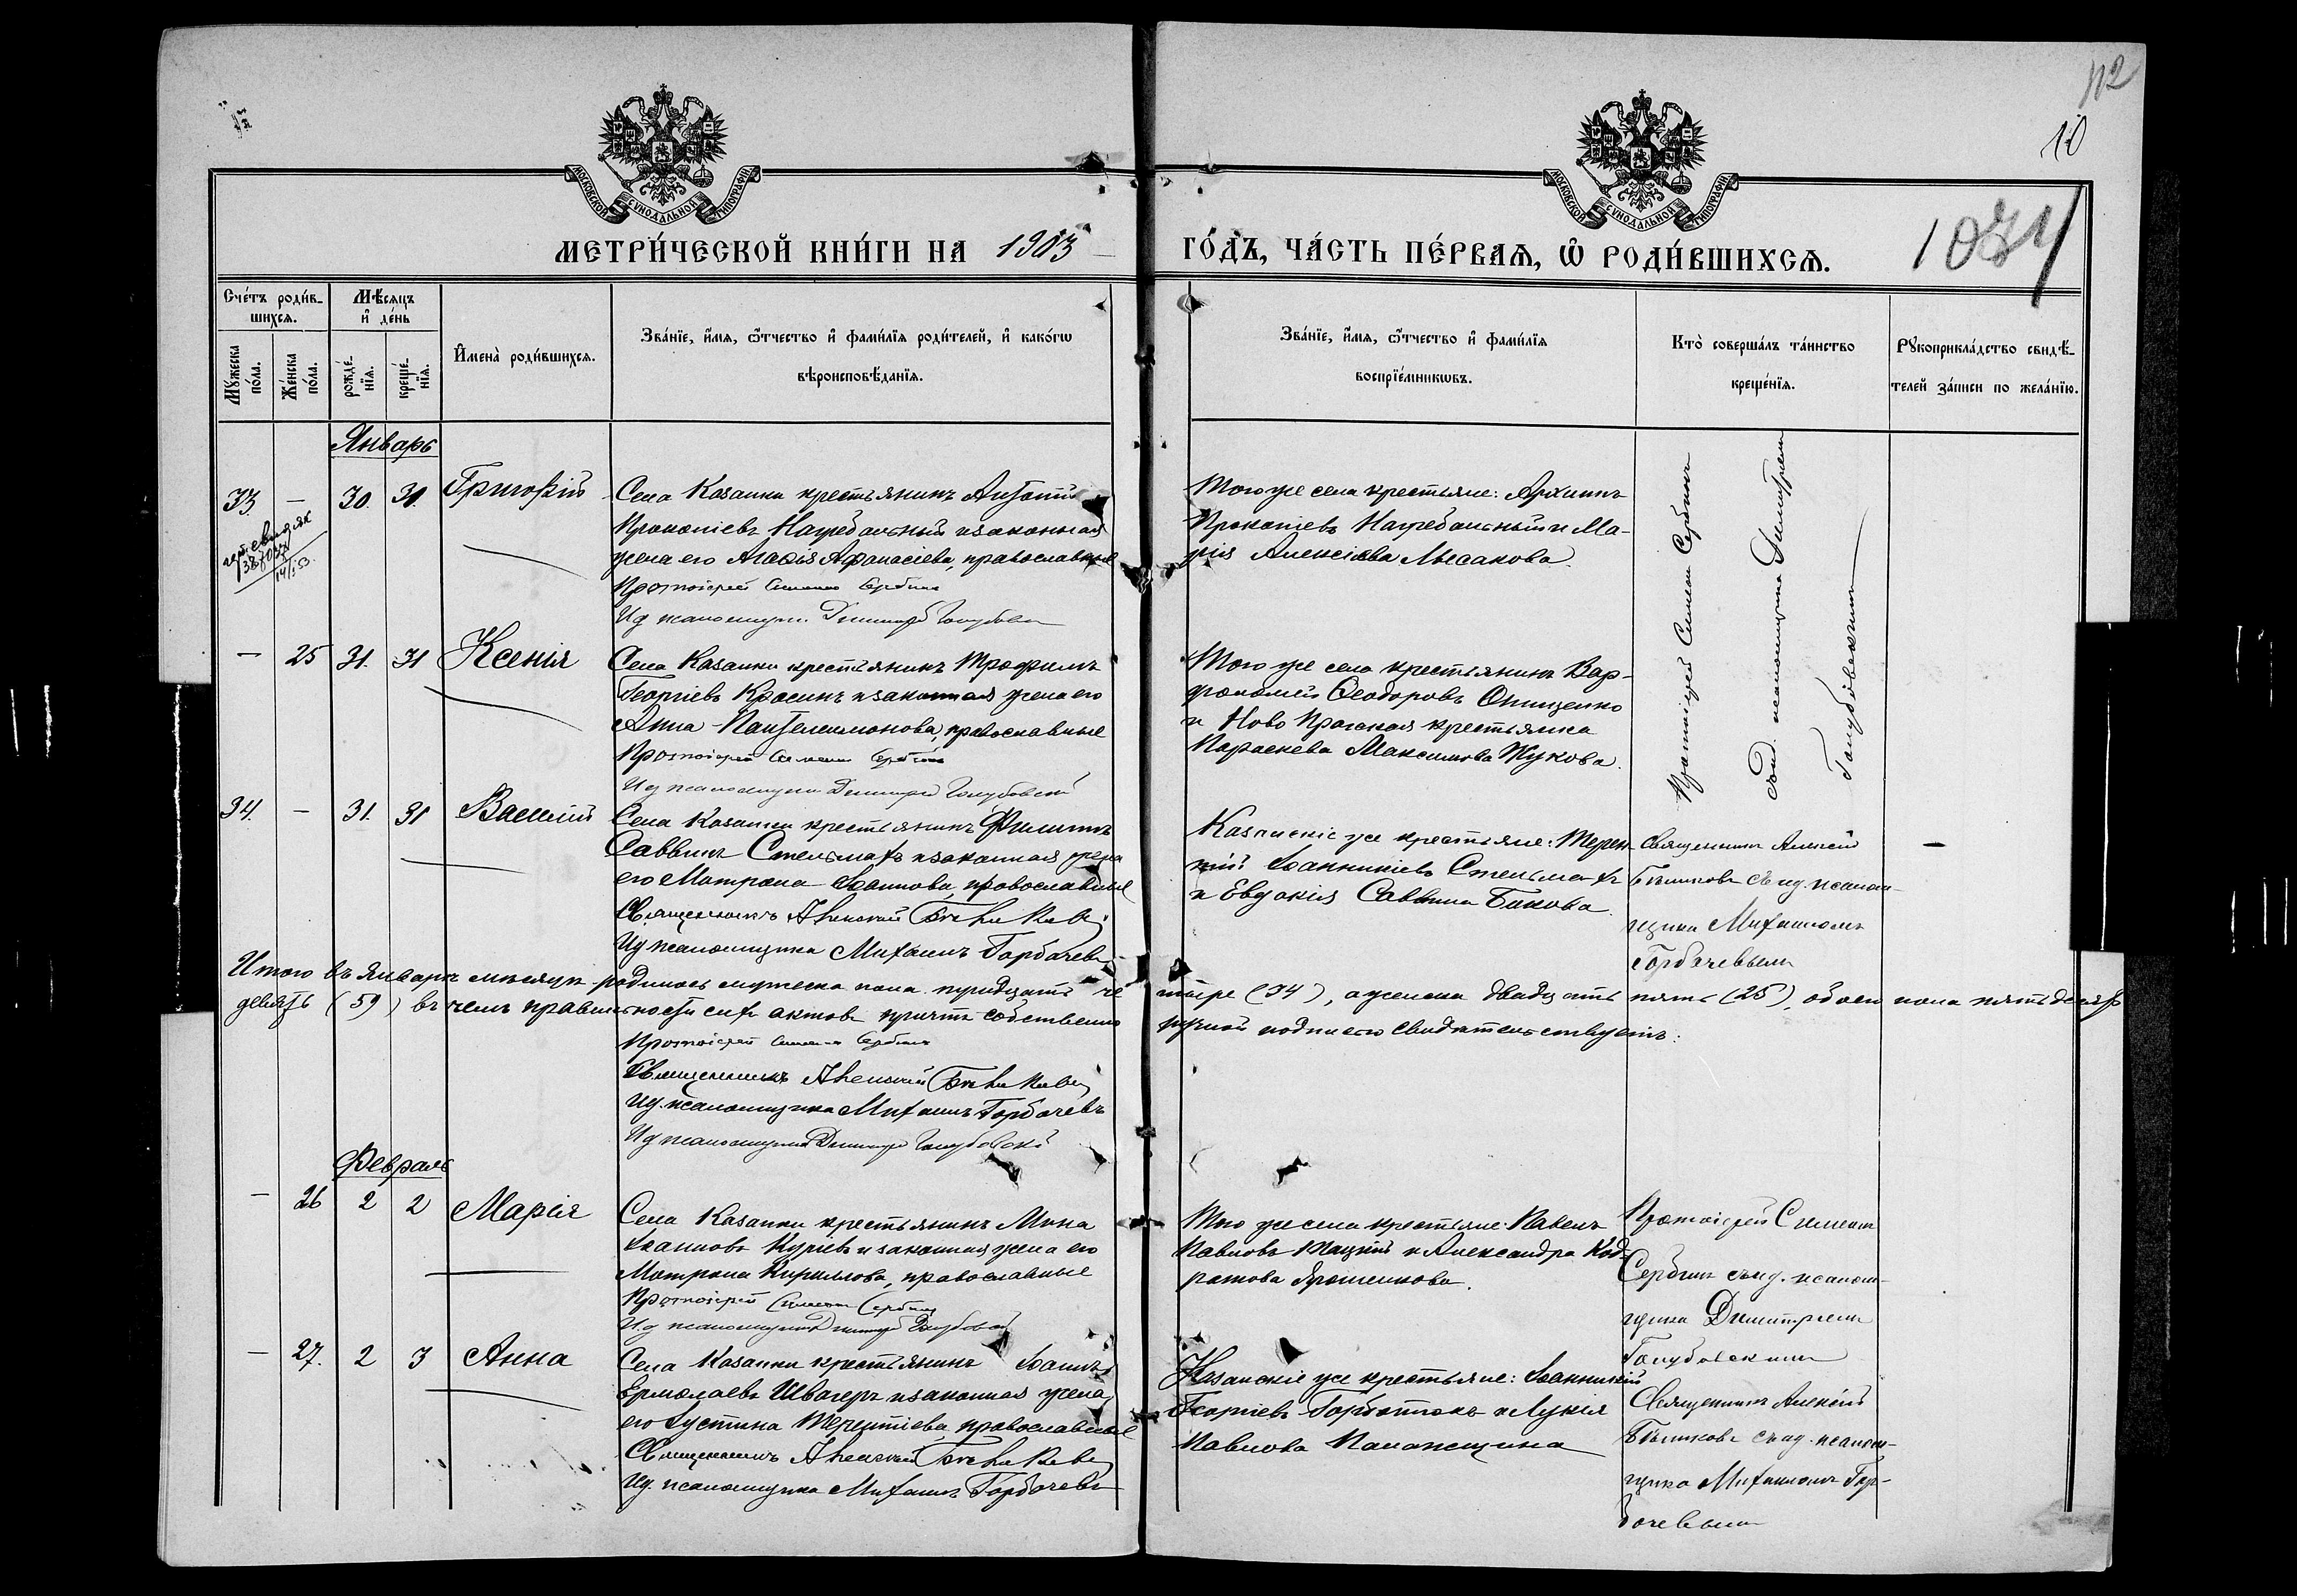 112
10
1074
МОСКОВСКОЙ СѴНОДАЛЬНОЙ ТИПОГРАФІИ
МОСКОВСКОЙ СѴНОДАЛЬНОЙ ТИПОГРАФІИ
МЕТРИ́ЧЕСКОЙ КНИ́ГИ НА 1903
ГО́ДЪ, ЧА́СТЬ ПЕ́РВАѦ, Ѿ РОДИ́ВШИХСѦ.
Сче́тъ роди́в-
шихсѧ.
Мѣ́сѧцъ
и҆ де́нь
Мꙋ́жеска
по́ла.
Же́нска
по́ла.
рожде́-
нїѧ.
креще́-
нїѧ.
И҆мена̀ роди́вшихсѧ.
Зва́нїе, и҆́мѧ, ѻ҆́тчество и҆ фами́лїѧ роди́телей, и҆ како́гѡ
вѣроисповѣ́данїѧ.
Зва́нїе, и҆́мѧ, ѻ҆́тчество и҆ фами́лїѧ
воспрїе́мникѡвъ.
Кто̀ соверша́лъ та́инство
креще́нїѧ.
Рꙋкоприкла́дство свидѣ́-
телей за́писи по жела́нїю.
Январь
33 — 30. 31. Григорій
Села Казанки крестьянинъ Антоній
Прокопіевъ Нагребальный и законная
жена его Агафія Афанасіева, православные
Протоіерей Симеонъ Сербинъ
Ид псаломщика Димитрій Голубовскій
Того же села крестьяне: Архипъ
Прокопіевъ Нагребальный и Ма-
рія Алексіева Лысакова.
Протоіерей Симеонъ Сербинъ
съ ид. псаломщика Димитріемъ
Голубовскимъ
— 25 31. 31 Ксенія
Села Казанки крестьянинъ Трофимъ
Георгіевъ Красинъ и законная жена его
Анна Пантелеимонова, православные
Протоіерей Симеонъ Сербинъ
Ид псаломщика Димитрій Голубовскій
Того же села крестьянинъ Вар-
фоломей Ѳеодоровъ Онищенко
и Ново Прагская крестьянка
Параскева Максимова Жукова.
34. — 31. 31 Василій
Села Казанки крестьянинъ Филиппъ
Саввинъ Стельмахъ и законная жена
его Матрона Іоаннова, православные
Священникъ Алексій Бѣликовъ
Ид псаломщика Михаилъ Горбачевъ
Казанскіе же крестьяне: Терен-
тій Іоанникіевъ Стельмахъ
и Евдокія Саввина Бикова
Священникъ Алексій
Бѣликовъ съ ид. псалом-
щика Михаиломъ
Горбачевымъ
—
Итого въ январѣ мѣсяцѣ родилось мужеска пола тридцать че
тыре (34), а женска двадцать пять (25), обоего пола пятьдесятъ
девять (59) въ чемъ правильности сихъ актовъ причтъ собственно
ручной подписью свидѣтельствуетъ:
Протоіерей Симеонъ Сербинъ
Священникъ Алексій Бѣликовъ
Ид. псаломщика Михаилъ Горбачевъ
Ид псаломщика Димитрій Голубовскій
Февраль
— 26 2 2 Марія
Села Казанки крестьянинъ Мина
Іоанновъ Куріевъ и законная жена его
Матрона Кириллова, православные
Протоіерей Симеонъ Сербинъ
И.д псаломщика Димитрій Голубовскій
Того же села крестьяне: Павелъ
Павловъ и Александра Код-
ратова Ярошенкова.
Протоіерей Симеонъ
Сербинъ съ ид. псалом-
щика Димитріемъ
Голубовскимъ
— 27. 2 3 Анна
Села Казанки крестьянинъ Іоаннъ
Ермолаевъ Швагеръ и законная жена
его Іустина Терентіева, православные
Священникъ Алексій Бѣликовъ
Ид. псаломщика Михаилъ Горбачевъ
Казанскіе же крестьяне: Іоанникій
Георгіевъ и Лукія
Павлова Паланжщина
Священникъ Алексій
Бѣликовъ съ ид. псалом-
щика Михаиломъ Гор-
бачевымъ